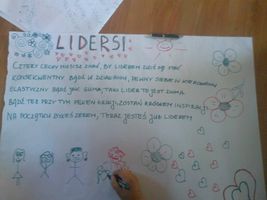 LIDERSI:
CZTERY CECHY MUSISZ ZNAĆ, BY LIDEREM ZWAĆ SIĘ MÓC
KONSEKWENTNY BĄDŹ W DZIAŁANIU, PEWNY SIEBIE W KIEROWANIU
ELASTYCZNY BĄDŹ JAK GUMA, TAKI LIDER TO JEST DUMA.
BĄDŹ TEŻ PRZY TYM PEŁEN KREACJI, ZOSTAŃ KRÓLEM INSPIRACJI
NA POCZĄTKU BYŁEŚ ZEREM, TERAZ JESTEŚ JUŻ LIDEREM